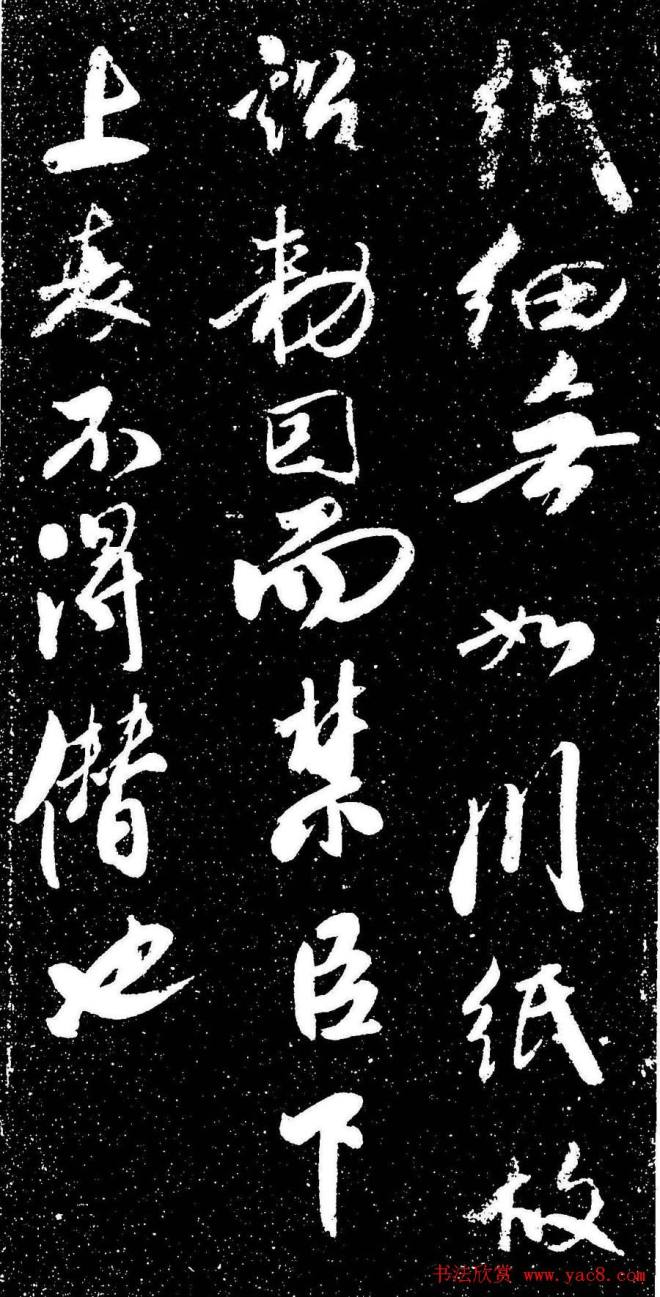 纸细无如川纸故
詔勅因而禁臣下
上表不得僭也
书法欣赏 www.yac8.com